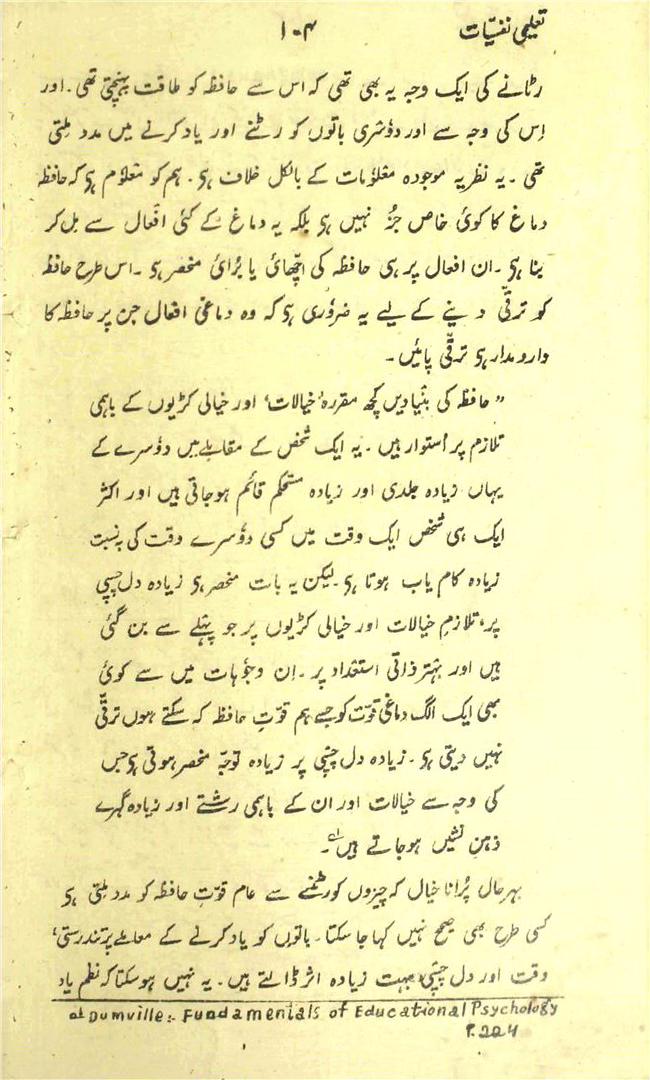 تعلیمی نفسیّات ۱۰۴
رٹانے کی ایک وجہ یہ بھی تھی کہ اس سے حافظہ کو طاقت پہنچتی تھی۔ اور
اِس کی وجہ سے اور دوٗسری باتوں کو رٹنے اور یاد کرنے میں مدد مِلتی
تھی۔ یہ نظریہ موجودہ معلوٗمات کے بالکل خلاف ہے۔ ہم کو معلوٗم ہے کہ حافظہ
دماغ کا کوئی خاص جزُ نہیں ہے بلکہ یہ دماغ کے کئی افعال سے مِل کر
بنا ہے۔ ان افعال پر ہی حافظہ کی اچھّائی یا بُرائی منحصر ہے۔ اس طرح حافظہ
کو ترقّی دینے کے لیے یہ ضروٗری ہے کہ وہ دماغی افعال جن پر حافظہ کا
دارومدار ہے ترقّی پائیں۔
” حافظہ کی بنُیادیں کچھ مقررہ ’خیالات‘ اور خیالی کڑیوں کے باہمی
تلازم پر اُستوار ہیں۔ یہ ایک شخص کے مقابلے میں دوٗسرے کے
یہاں زیادہ جلدی اور زیادہ مستحکم قائم ہوجاتی ہیں اور اکثر
ایک ہی شخص ایک وقت میں کسی دوٗسرے وقت کی بہ نسبت
زیادہ کام یاب ہوتا ہے۔ لیکن یہ بات منحصر ہے زیادہ دل چسپی
پر، تلازمِ خیالات اور خیالی کڑیوں پر جو پہلے سے بن گئی
ہیں اور بہتر ذاتی استعداد پر۔ اِن وجوٗہات میں سے کوئی
بھی ایک الگ دماغی قوّت کو جسے ہم قوّتِ حافظہ کہ سکتے ہوں ترقّی
نہیں دیتی ہے۔ زیادہ دل چسپی پر زیادہ توجّہ منحصر ہوتی ہے جس
کی وجہ سے خیالات اور ان کے باہمی رشتے اور زیادہ گہرے
ذہن نشیں ہوجاتے ہیں“۔
بہرحال پُرانا خیال کہ چیزوں کو رٹنے سے عام قوّتِ حافظہ کو مدد مِلتی ہے
کسی طرح بھی صحیح نہیں کہا جا سکتا۔ باتوں کو یاد کرنے کے معاملے پر تندرستی،
وقت اور دل چسپی بہت زیادہ اثر ڈالتے ہیں۔ یہ نہیں ہوسکتا کہ نظم یاد
Dumville:- Fundamentals of Educational Psychology
P.224